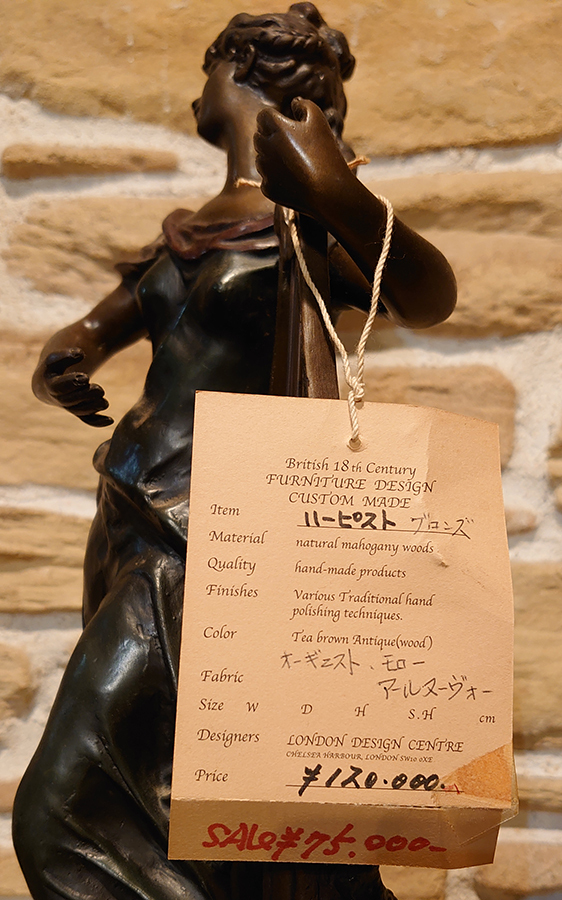 British 18th Century
FURNITURE DESIGN
CUSTOM MADE
Item ハーピスト ブロンズ
Material natural mahogany woods
Quality hand-made products
Finishes Various Traditional hand
polishing techniques.
Color Tea brown Antique(wood)
オーギュスト、モロー
Fabric アールヌーヴォー
Size W D H S.H cm
Designers LONDON DESIGN CENTRE
CHELSEA HARBOUR, LONDON SW10 0XE
Price ¥120.000.
SALe¥75.000-